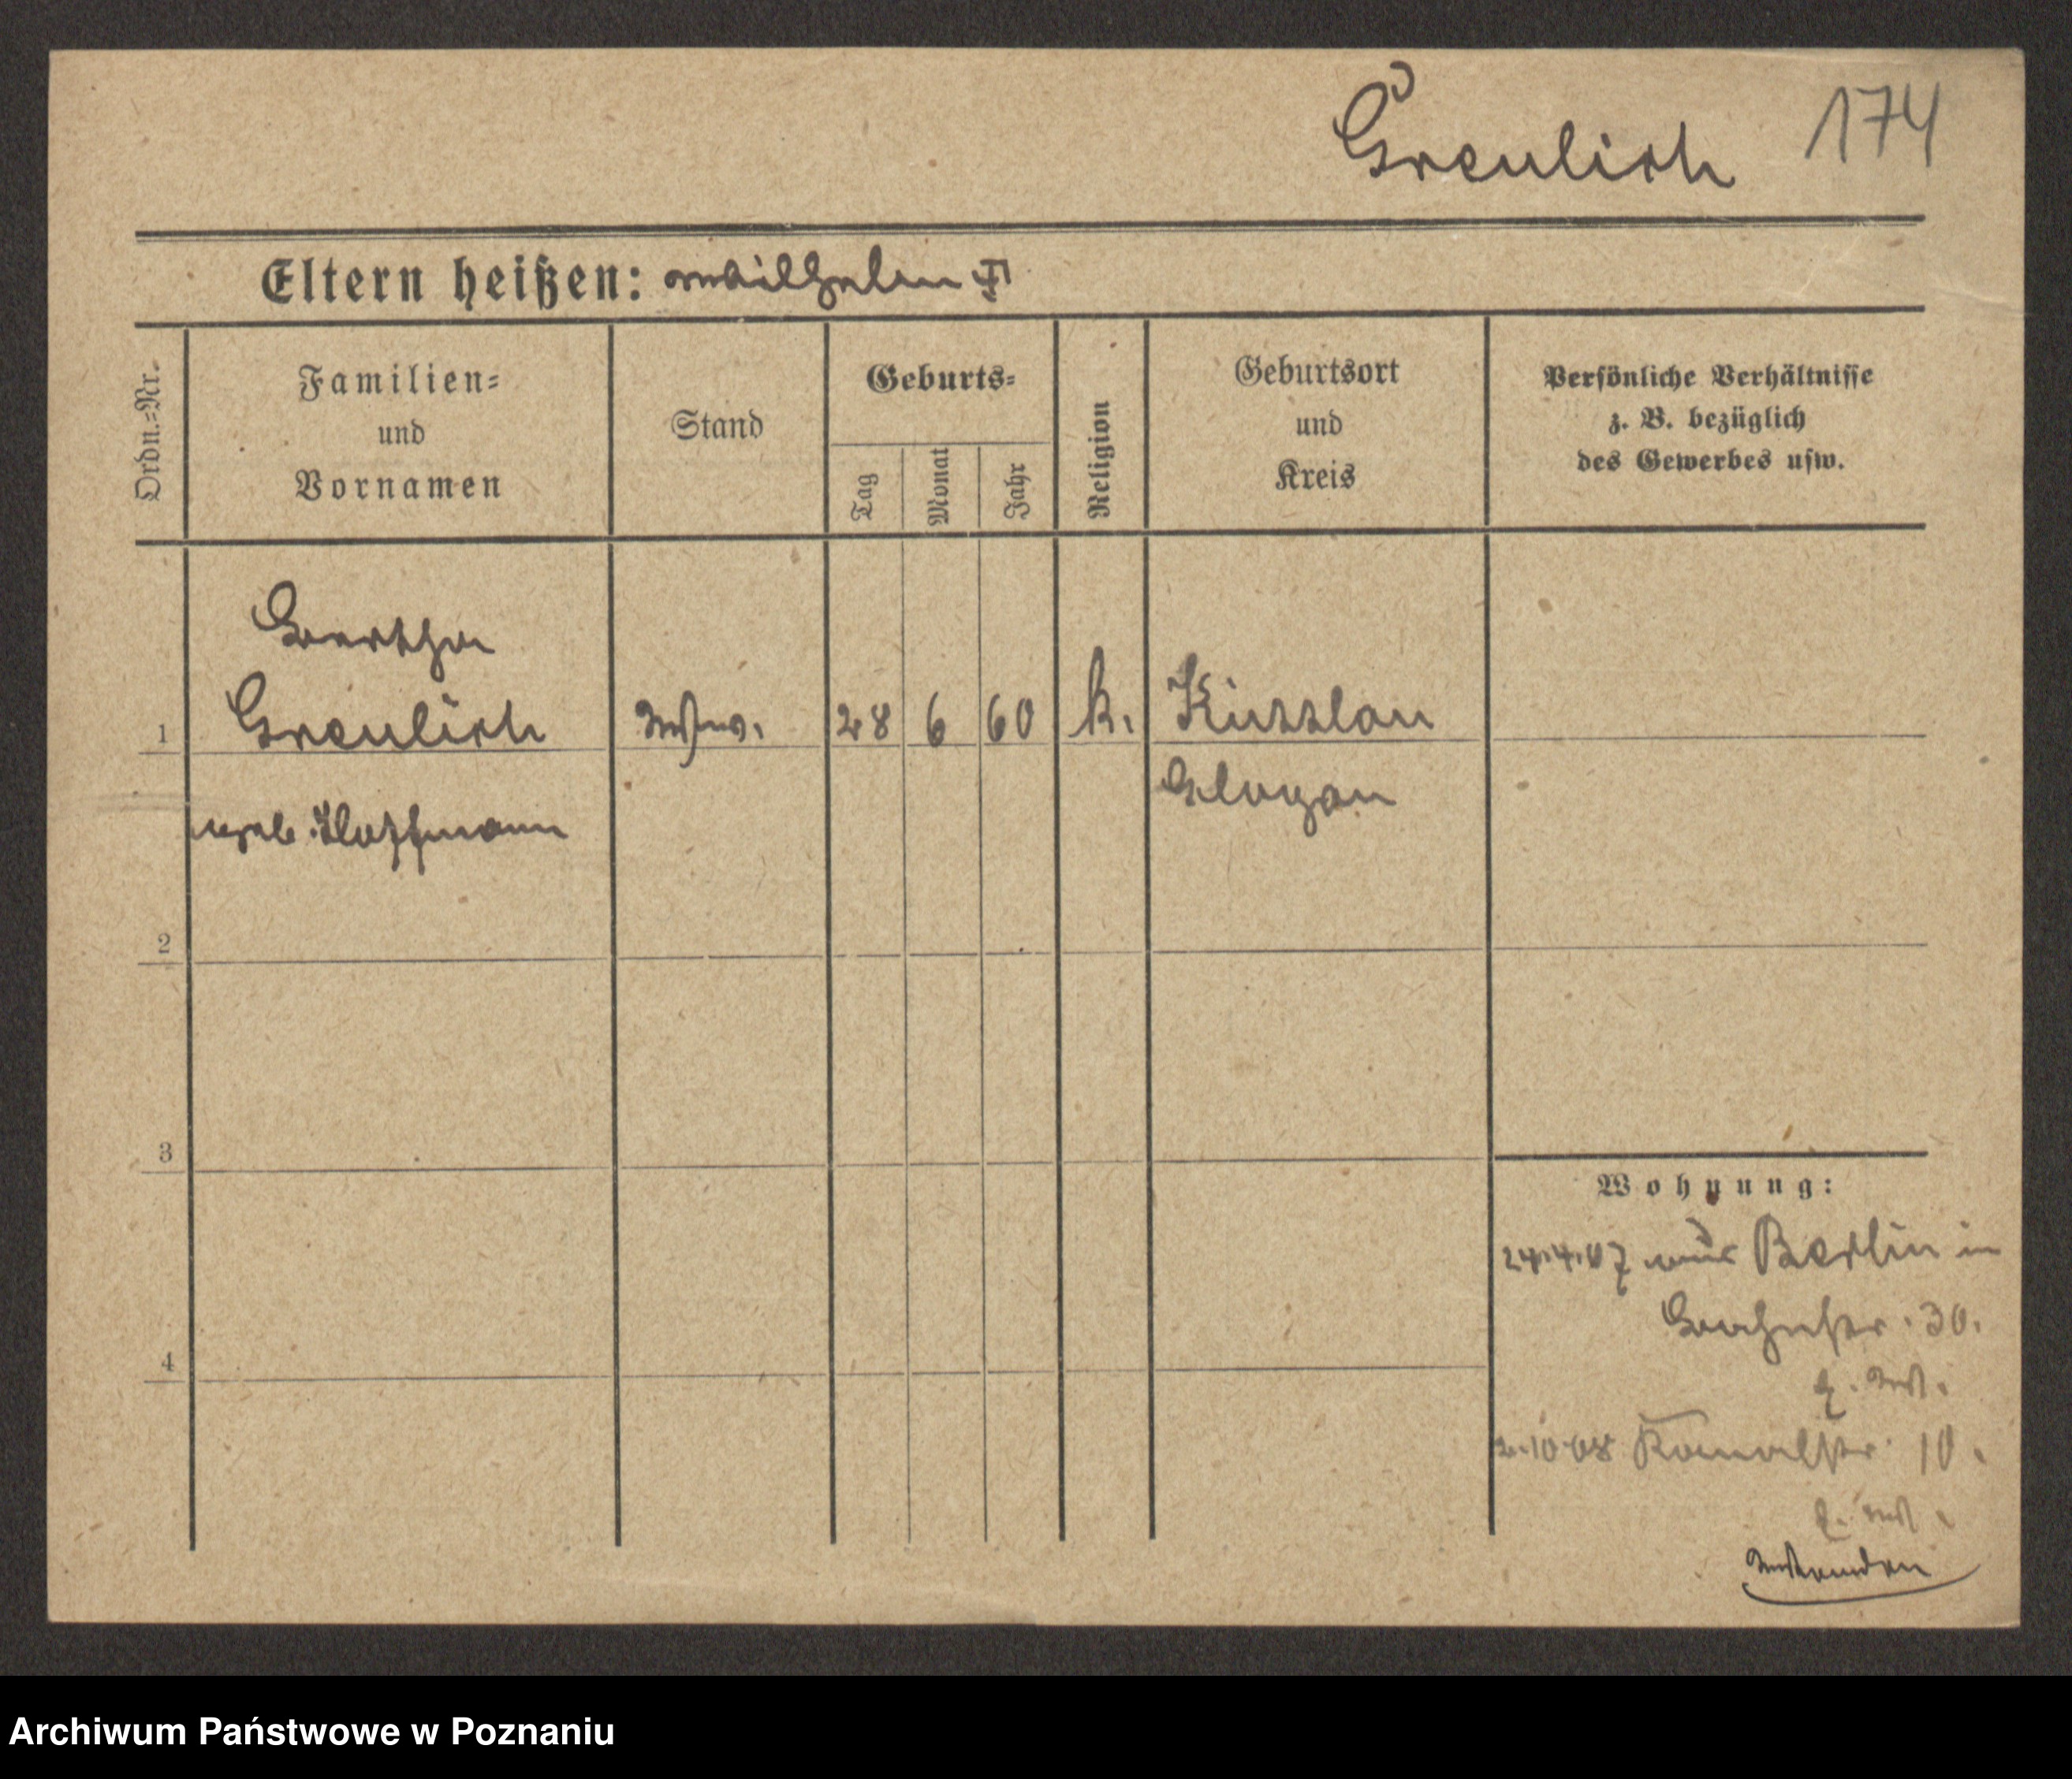 Greulich 174
Eltern heißen: Wilhelm
Ordn.=Nr.
Familien=
und
Vornamen
Stand
Geburts=
Tag
Monat
Jahr
Religion
Geburtsort
und
Kreis
Persönliche Verhältnisse
z. B. bezüglich
des Gewerbes usw.
Bertha
1 Greulich Wtw. 28 6 60 k. Kuttlau
Glogau
geb. Hoffmann
2
3
4
Wohnung:
24.4.07 aus Berlin in
30.
2.10.08 Kanalstr. 10.
Archiwum Państwowe w Poznaniu